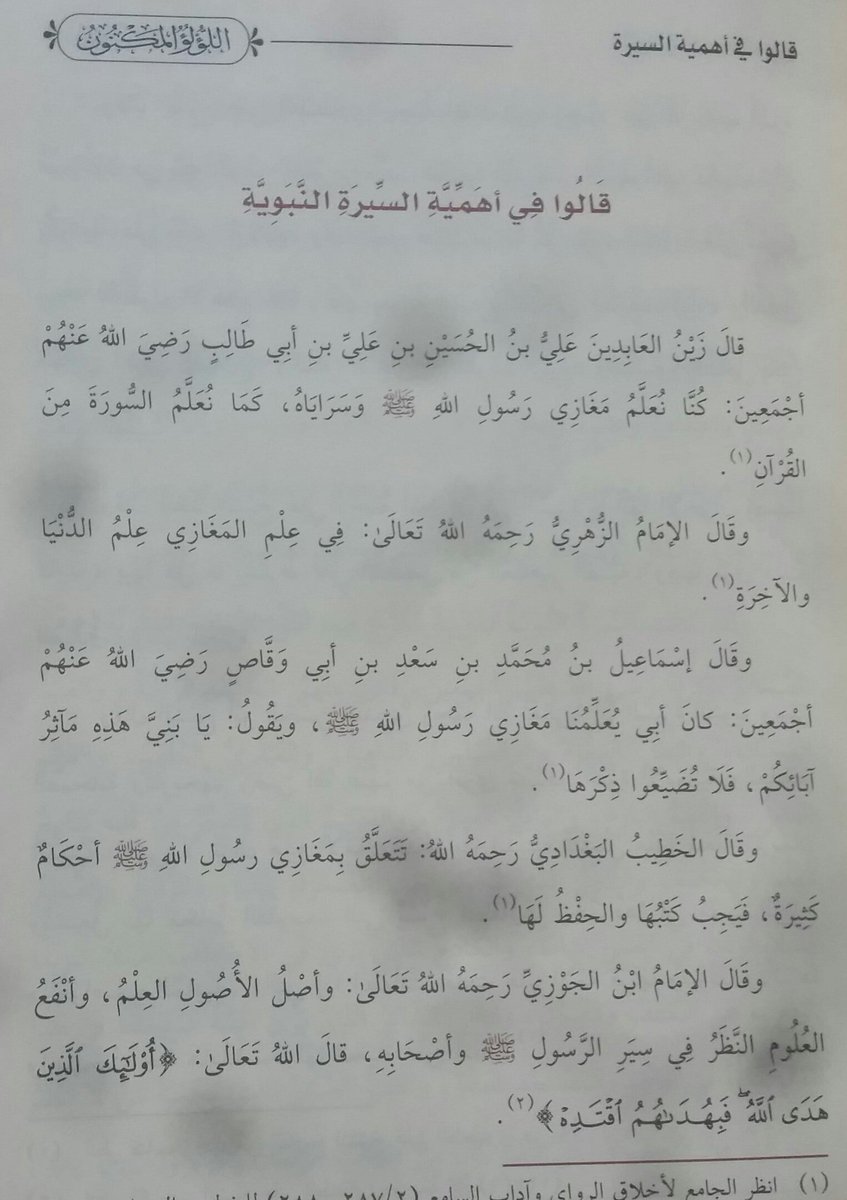 قالوا في أهمية السيرة
اللؤلؤ المكنون
قَالُوا فِي أهَمِّيَّةِ السِّيرَةِ النَّبَوِيَّةِ
قالَ زَيْنُ العَابِدِينَ عَلِيُّ بنُ الحُسَيْنِ بنِ عَلِيِّ بنِ أبِي طَالِبٍ رَضِيَ اللهُ عَنْهُمْ
أجْمَعِينَ: كُنَّا نُعَلَّمُ مَغَازِي رَسُولِ اللهِ ﷺ وَسَرَايَاهُ، كَمَا نُعَلَّمُ السُّورَةَ مِنَ
القُرْآنِ(١).
وقَالَ الإمَامُ الزُّهْرِيُّ رَحِمَهُ اللهُ تَعَالَىٰ: فِي عِلْمِ المَغَازِي عِلْمُ الدُّنْيَا
والآخِرَةِ(١).
وقَالَ إسْمَاعِيلُ بنُ مُحَمَّدِ بنِ سَعْدِ بنِ أبِي وَقَّاصٍ رَضِيَ اللهُ عَنْهُمْ
أجْمَعِينَ: كانَ أبِي يُعَلِّمُنَا مَغَازِي رَسُولِ اللهِ ﷺ، ويَقُولُ: يَا بَنِيَّ هَذِهِ مَآثِرُ
آبَائِكُمْ، فَلَا تُضَيِّعُوا ذِكْرَهَا(١).
وقَالَ الخَطِيبُ البَغْدَادِيُّ رَحِمَهُ اللهُ: تَتَعَلَّقُ بِمَغَازِي رسُولِ اللهِ ﷺ أحْكَامٌ
كَثِيرَةٌ، فَيَجِبُ كَتْبُهَا والحِفْظُ لَهَا(١).
وقَالَ الإمَامُ ابْنُ الجَوْزِيِّ رَحِمَهُ اللهُ تَعَالَىٰ: وأصْلُ الأُصُولِ العِلْمُ، وأنْفَعُ
العُلُومِ النَّظَرُ فِي سِيَرِ الرَّسُولِ ﷺ وأصْحَابِهِ، قالَ اللهُ تَعَالَىٰ: ﴿أُوْلَـٰٓئِكَ ٱلَّذِينَ
هَدَى ٱللَّهُۖ فَبِهُدَىٰهُمُ ٱقْتَدِهْ﴾(٢).
(١) انظر الجامع لأخلاق الراوي وآداب السامع (٢/٢٨٧ - ٢٨٨)